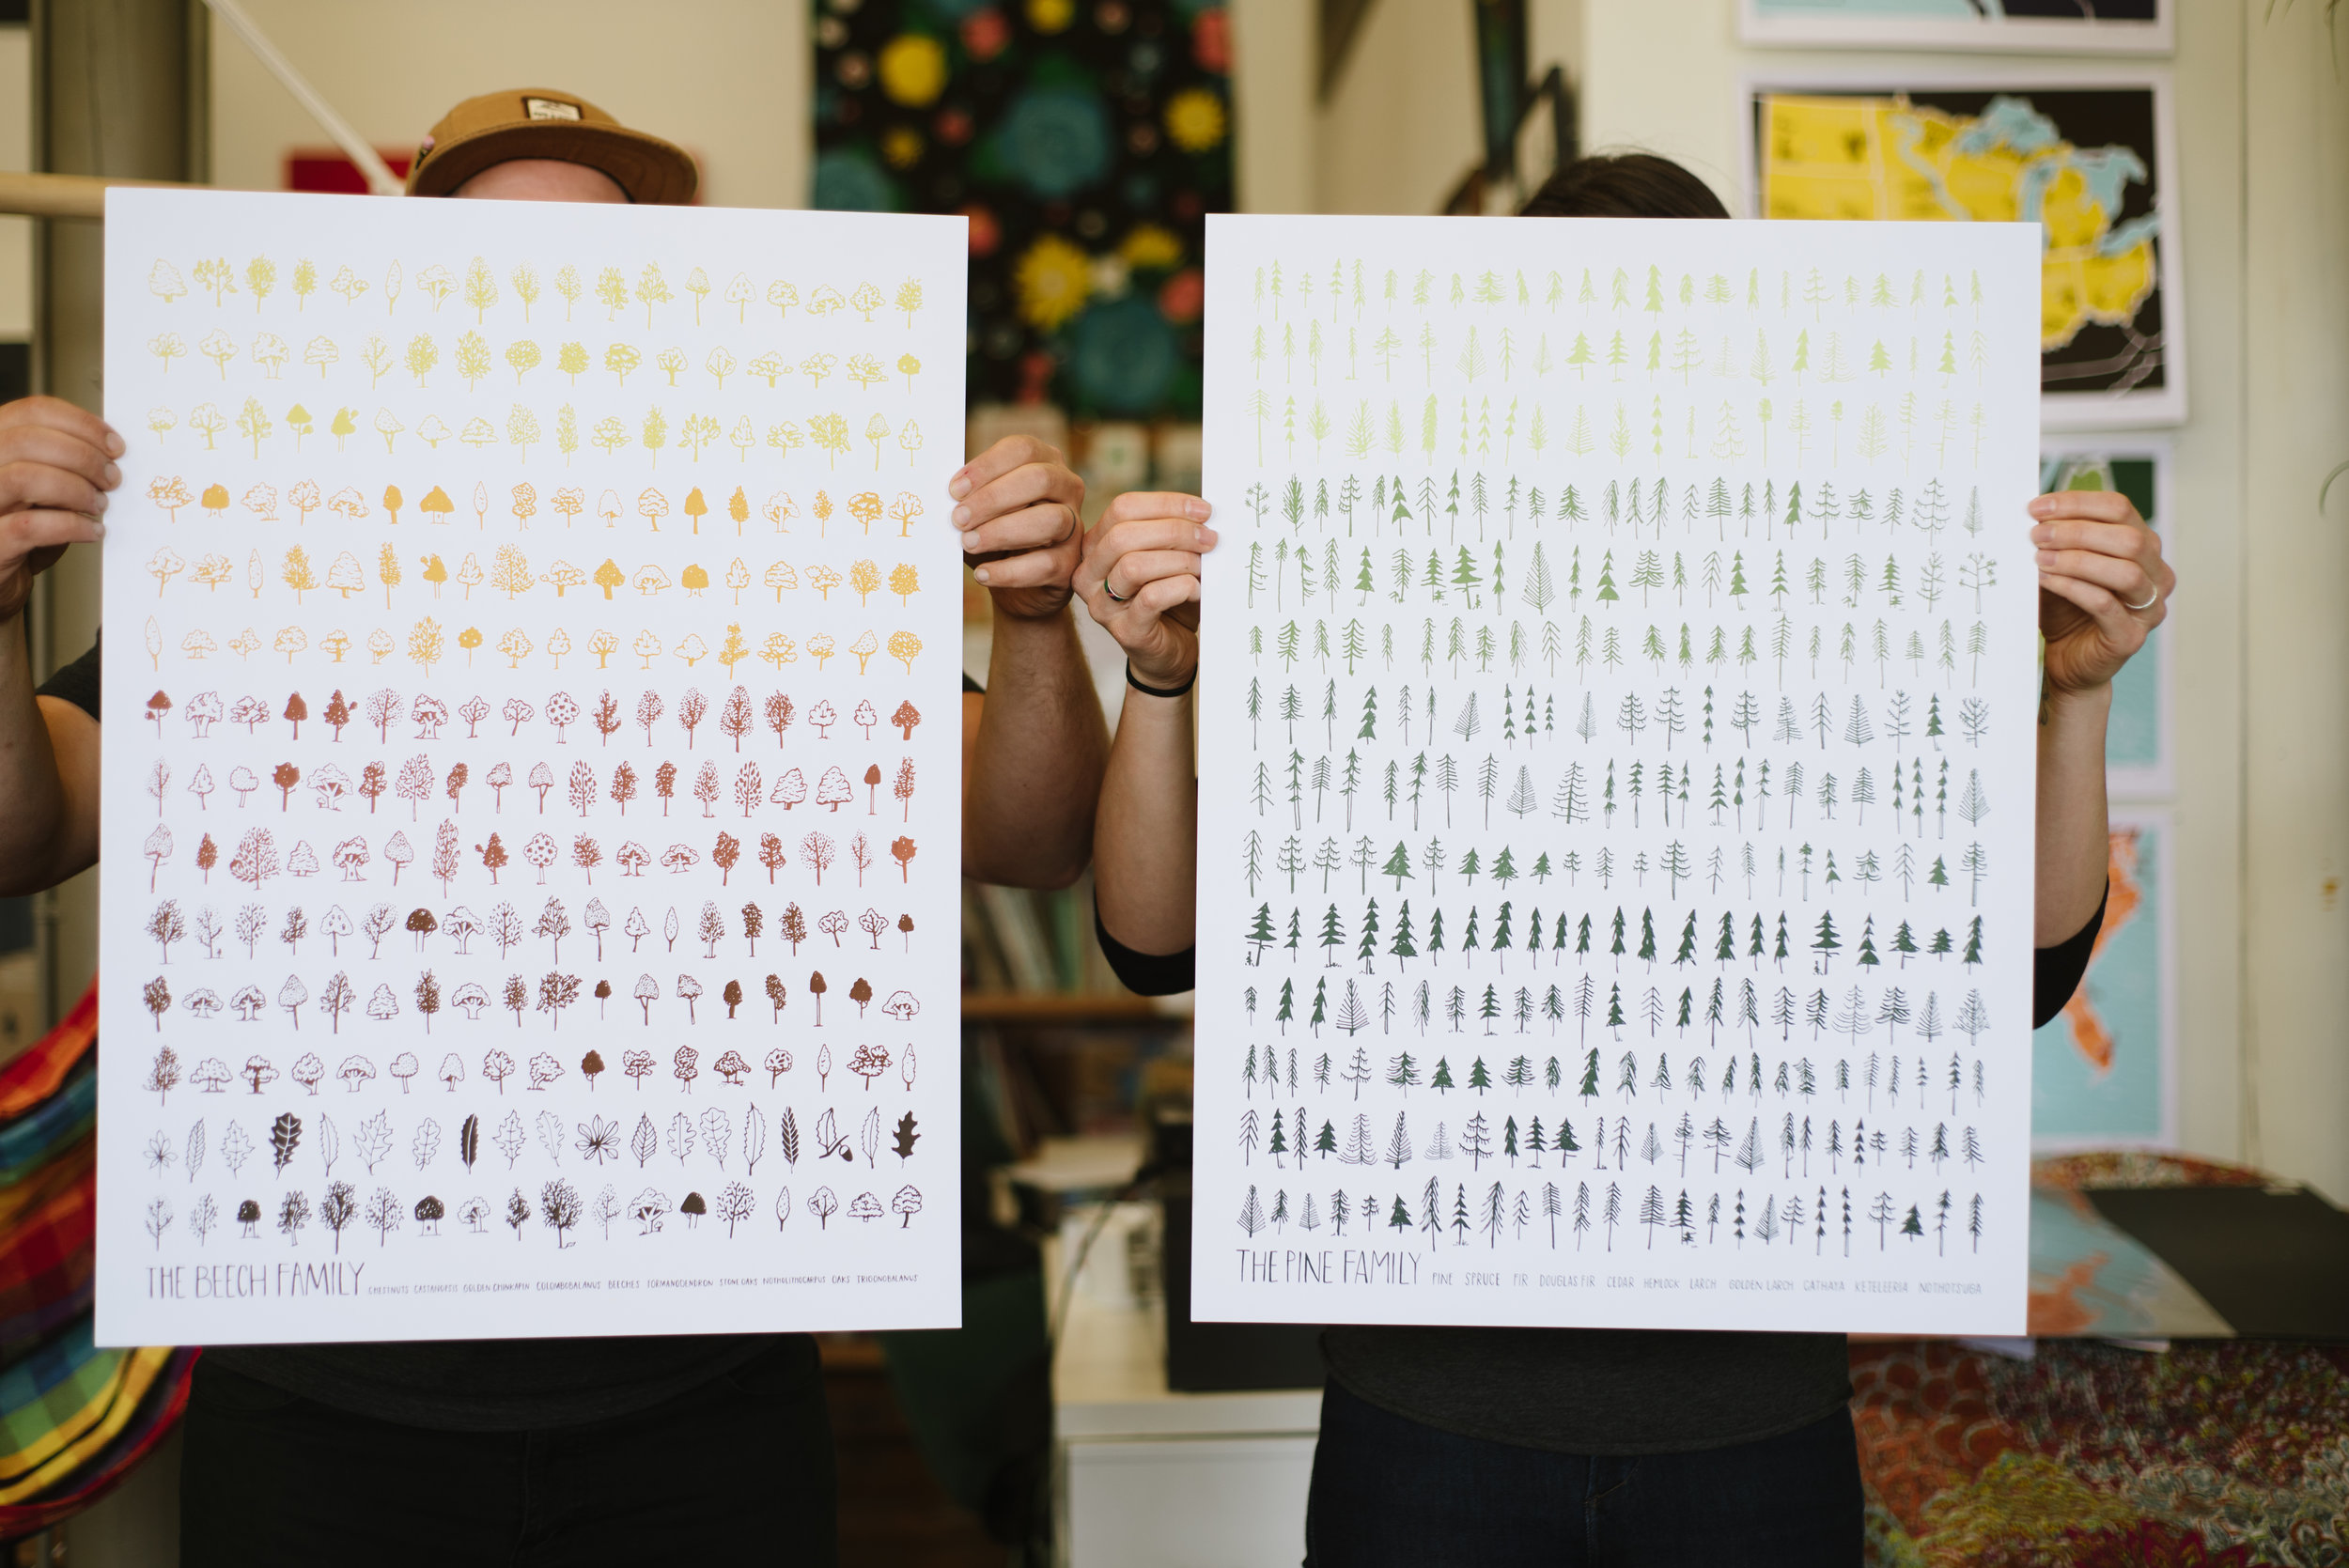 THE BEECH FAMILY CHESTNUTS CASTANOPSIS GOLDEN CHINKAPIN COLOMBOBALANUS BEECHES FORMANODENDRON STONE OAKS NOTHOLITHOCARPUS OAKS TRIGONOBALANUS
THE PINE FAMILY PINE SPRUCE FIR DOUGLAS FIR CEDAR HEMLOCK LARCH GOLDEN LARCH CATHAYA KETELEERIA NOTHOTSUGA